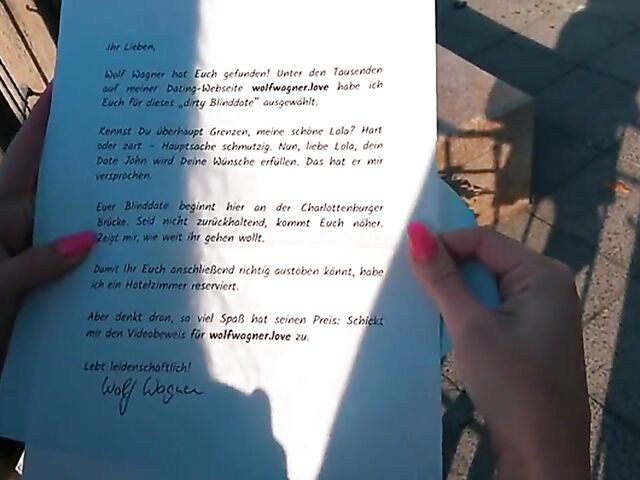 Ihr Lieben,
Wolf Wagner hat Euch gefunden! Unter den Tausenden
auf meiner Dating-Webseite wolfwagner.love habe ich
Euch für dieses „dirty Blinddate" ausgewählt.
Kennst Du überhaupt Grenzen, meine schöne Lola? Hart
oder zart – Hauptsache schmutzig. Nun, liebe Lola, dein
Date John wird Deine Wünsche erfüllen. Das hat er mir
versprochen.
Euer Blinddate beginnt hier an der Charlottenburger
Brücke. Seid nicht zurückhaltend, kommt Euch näher.
Zeigt mir, wie weit ihr gehen wollt.
Damit Ihr Euch anschließend richtig austoben könnt, habe
ich ein Hotelzimmer reserviert.
Aber denkt dran, so viel Spaß hat seinen Preis: Schickt
mir den Videobeweis für wolfwagner.love zu.
Lebt leidenschaftlich!
Wolf Wagner